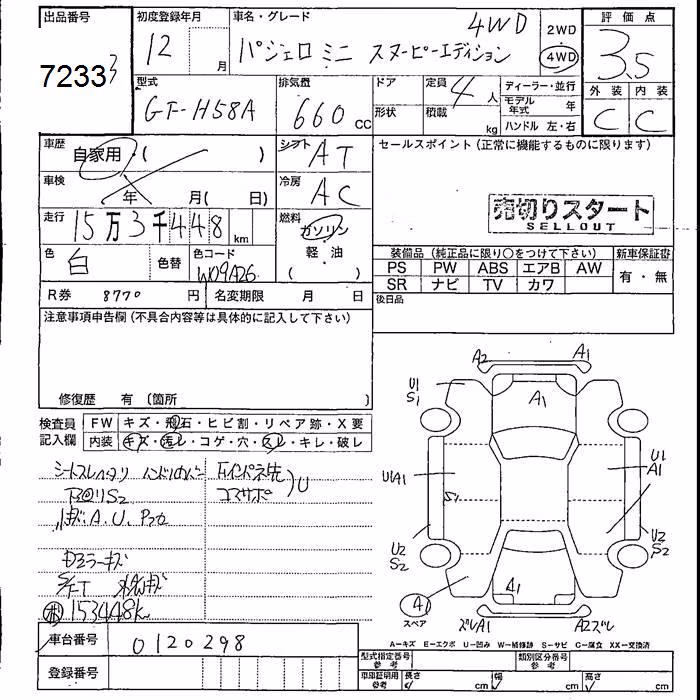 出品番号
72333
初度登録年月
12 月
車名・グレード
4WD
パジェロ ミニ スヌーピーエディション
2WD
4WD
評価点
3.5
外装 内装
C C
型式
GF-H58A
排気量
660 cc
ドア
形状
定員 4 人
積載 kg
ディーラー・並行
モデル年式 年
ハンドル 左・右
車歴
自家用・( )
シフト AT
セールスポイント (正常に機能するものに限ります)
車検
年 月( 日)
冷房 AC
売切りスタート
SELLOUT
走行
15万3千448 km
燃料
ガソリン
軽油
( )
色 白
色替
色コード
W09A26
装備品 (純正品に限り○をつけて下さい)
新車保証書
PS PW ABS エアB AW
有・無
SR ナビ TV カワ
R券 8770 円
名変期限 月 日
後日品
注意事項申告欄 (不具合内容等は具体的に記入して下さい)
修復歴 有 (箇所 )
検査員
記入欄
FW キズ・飛石・ヒビ割・リペア跡・X要
内装 キズ・汚レ・コゲ・穴・スレ・キレ・破レ
シートスレ
A.U.
Dミラーキズ
153448k
U
A2 A1
U1
S1
A1
U1A1
S1
U1
A1
U2
S2
U2
S2
A1
A1
スペア
ズレA1
A2ズレ
A-キズ E-エクボ U-凹み W-補修跡 S-サビ C-腐食 XX-交換済
車台番号 0120298
登録番号
型式指定番号
参考
類別区分番号
参考
車庫証明用
参考
長さ cm
幅 cm
高さ cm